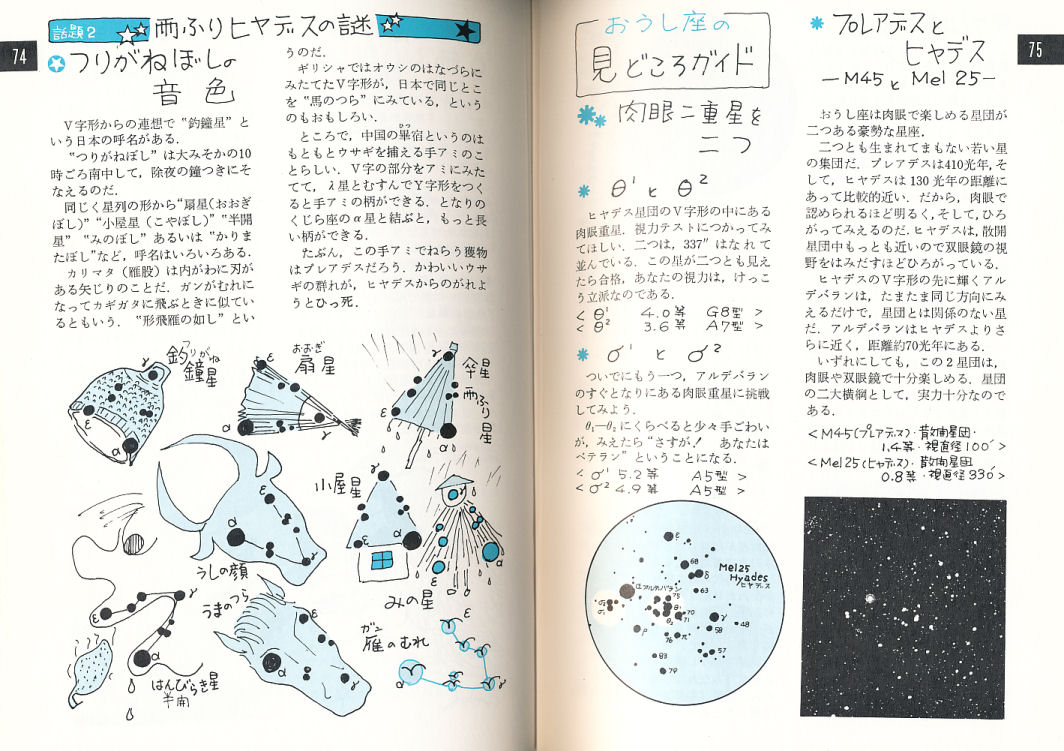 74
話題2
雨ふりヒヤデスの謎
つりがねぼしの
音色
V字形からの連想で“釣鐘星”と
いう日本の呼名がある.
“つりがねぼし”は大みそかの10
時ごろ南中して，除夜の鐘つきにそ
なえるのだ.
同じく星列の形から“扇星(おおぎ
ぼし)”“小屋星（こやぼし）”“半開
星”“みのぼし”あるいは“かりま
たぼし”など，呼名はいろいろある.
カリマタ（雁股）は内がわに刃が
ある矢じりのことだ．ガンがむれに
なってカギガタに飛ぶときに似てい
るともいう．“形飛雁の如し”とい
うのだ.
ギリシャではオウシのはなづらに
みたてたV字形が，日本で同じとこ
を“馬のつら”にみている，という
のもおもしろい.
ところで，中国の畢宿というのは
もともとウサギを捕える手アミのこ
とらしい．V字の部分をアミにみた
てて，λ星とむすんでY字形をつく
ると手アミの柄ができる．となりの
くじら座のα星と結ぶと，もっと長
い柄ができる.
たぶん，この手アミでねらう獲物
はプレアデスだろう．かわいいウサ
ギの群れが，ヒヤデスからのがれよ
うとひっ死.
釣鐘星
つりがね
γ
ε
α
扇星
おおぎ
γ
ε
α
傘星
雨ふり星
γ
ε
α
うしの顔
ε
α
γ
小屋星
γ
ε
α
みの星
γ
ε
α
はんびらき星
半開
ε
γ
α
うまのつら
ε
α
γ
ガン
雁のむれ
ε
α
γ
75
おうし座の
見どころガイド
肉眼二重星を
二つ
θ¹ と θ²
ヒヤデス星団のV字形の中にある
肉眼重星．視力テストにつかってみ
てほしい．二つは，337″はなれて
並んでいる．この星が二つとも見え
たら合格，あなたの視力は，けっこ
う立派なのである.
< θ¹ 4.0等 G8型 >
< θ² 3.6等 A7型 >
σ¹ と σ²
ついでにもう一つ，アルデバラン
のすぐとなりにある肉眼重星に挑戦
してみよう.
θ₁—θ₂にくらべると少々手ごわい
が，みえたら“さすが！ あなたは
ベテラン”ということになる.
< σ¹ 5.2等 A5型 >
< σ² 4.9等 A5型 >
ε
68
δ
Mel25
Hyades
ヒヤデス
63
αアルデバラン
75
σ₂
σ₁
θ₁
θ₂
70
71
γ
48
58
ρ
76
π
83
57
79
プレアデスと
ヒヤデス
—M45と Mel 25—
おうし座は肉眼で楽しめる星団が
二つある豪勢な星座.
二つとも生まれてまもない若い星
の集団だ．プレアデスは410光年，そ
して，ヒヤデスは130光年の距離に
あって比較的近い．だから，肉眼で
認められるほど明るく，そして，ひろ
がってみえるのだ．ヒヤデスは，散開
星団中もっとも近いので双眼鏡の視
野をはみだすほどひろがっている.
ヒヤデスのV字形の先に輝くアル
デバランは，たまたま同じ方向にみ
えるだけで，星団とは関係のない星
だ．アルデバランはヒヤデスよりさ
らに近く，距離約70光年にある.
いずれにしても，この2星団は，
肉眼や双眼鏡で十分楽しめる．星団
の二大横綱として，実力十分なので
ある.
<M45(プレアデス)・散開星団・
1.4等・視直径100′>
<Mel25(ヒヤデス)・散開星団
0.8等・視直径330′>